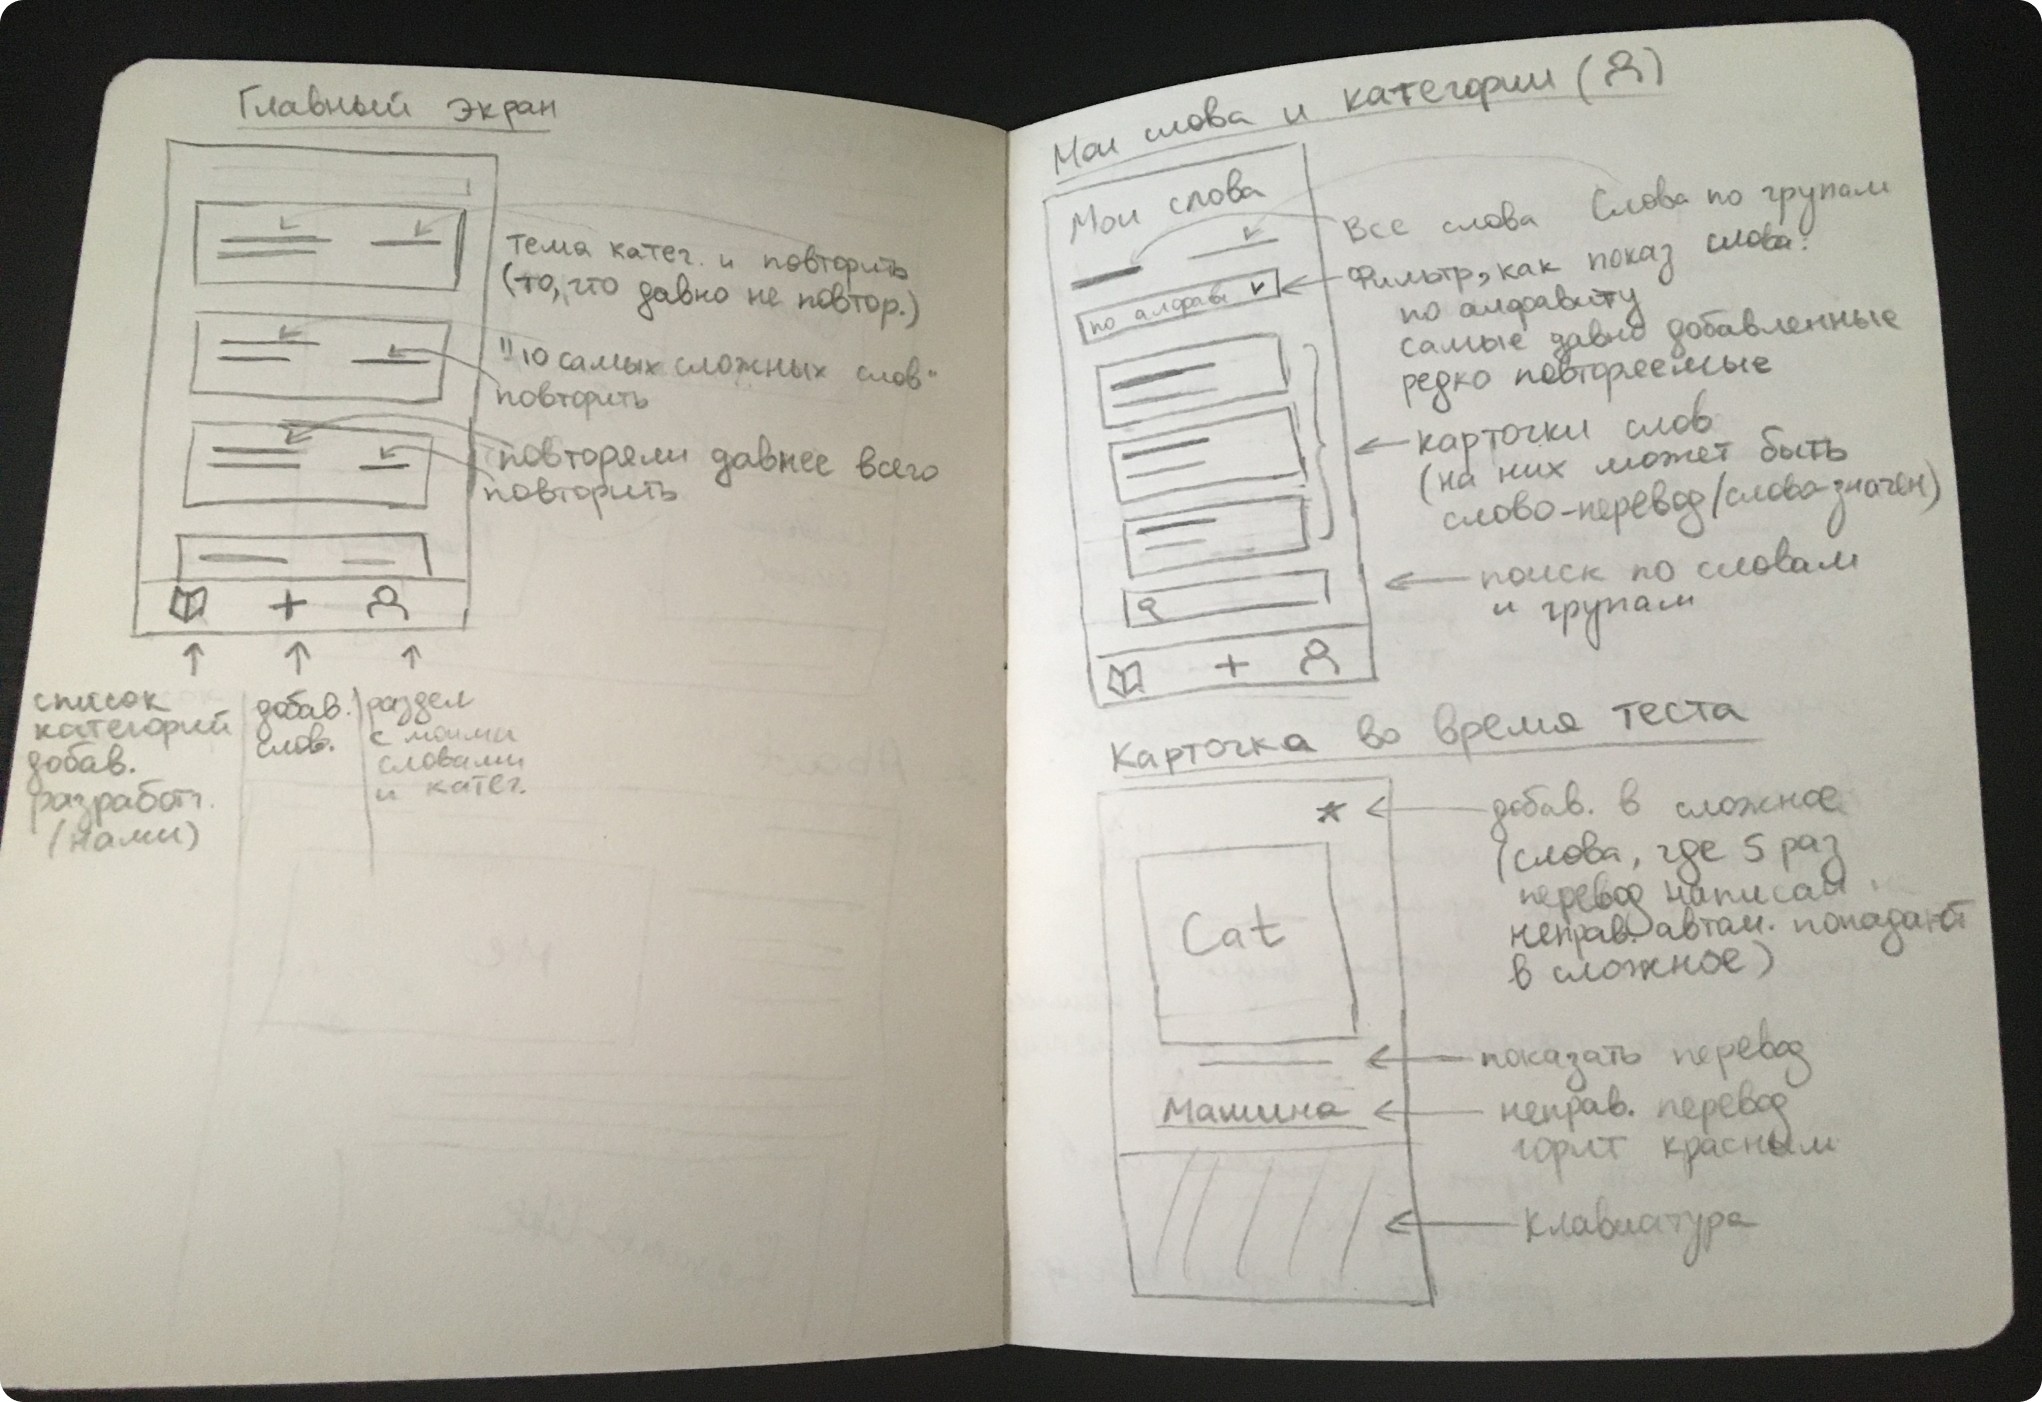 Главный экран
тема катег. и повторить
(то, что давно не повтор.)
"10 самых сложных слов"
повторить
повторяли давнее всего
повторить
список
категорий
добав.
разработ.
(нами)
добав.
слов.
раздел
с моими
словами
и катег.
Мои слова и категории ( )
Мои слова
Все слова Слова по групам
по алфави
Фильтр, как показ слова:
по алфавиту
самые давно добавленные
редко повторяемые
карточки слов
(на них может быть
слово-перевод/слово-значен)
поиск по словам
и групам
Карточка во время теста
добав. в сложное
(слова, где 5 раз
перевод написали
неправ. автом. попадают
в сложное)
Cat
показать перевод
Машина
неправ. перевод
горит красным
клавиатура